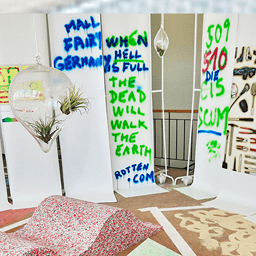 MALL
FAIRY
GERMAN
WHEN
HELL
IS FULL
THE
DEAD
WILL
WALK
THE
EARTH
ROTTEN
.COM
509
510
DIE
CIS
SCUM